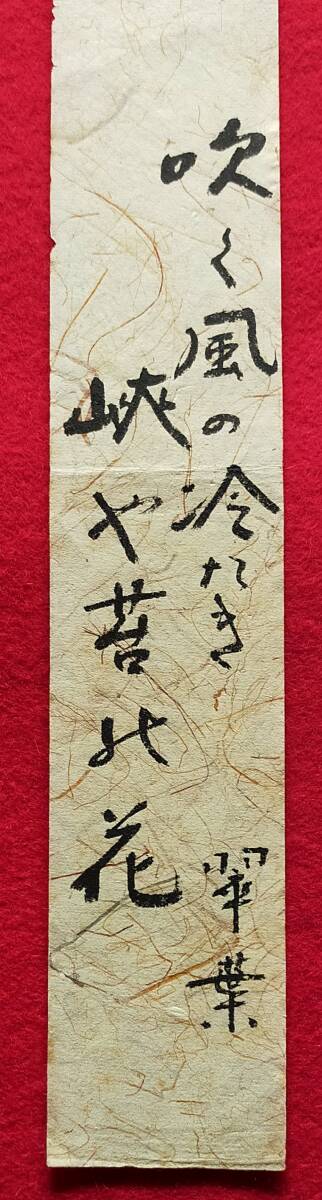 吹く風の冷たき
峡や苔の花
翠葉